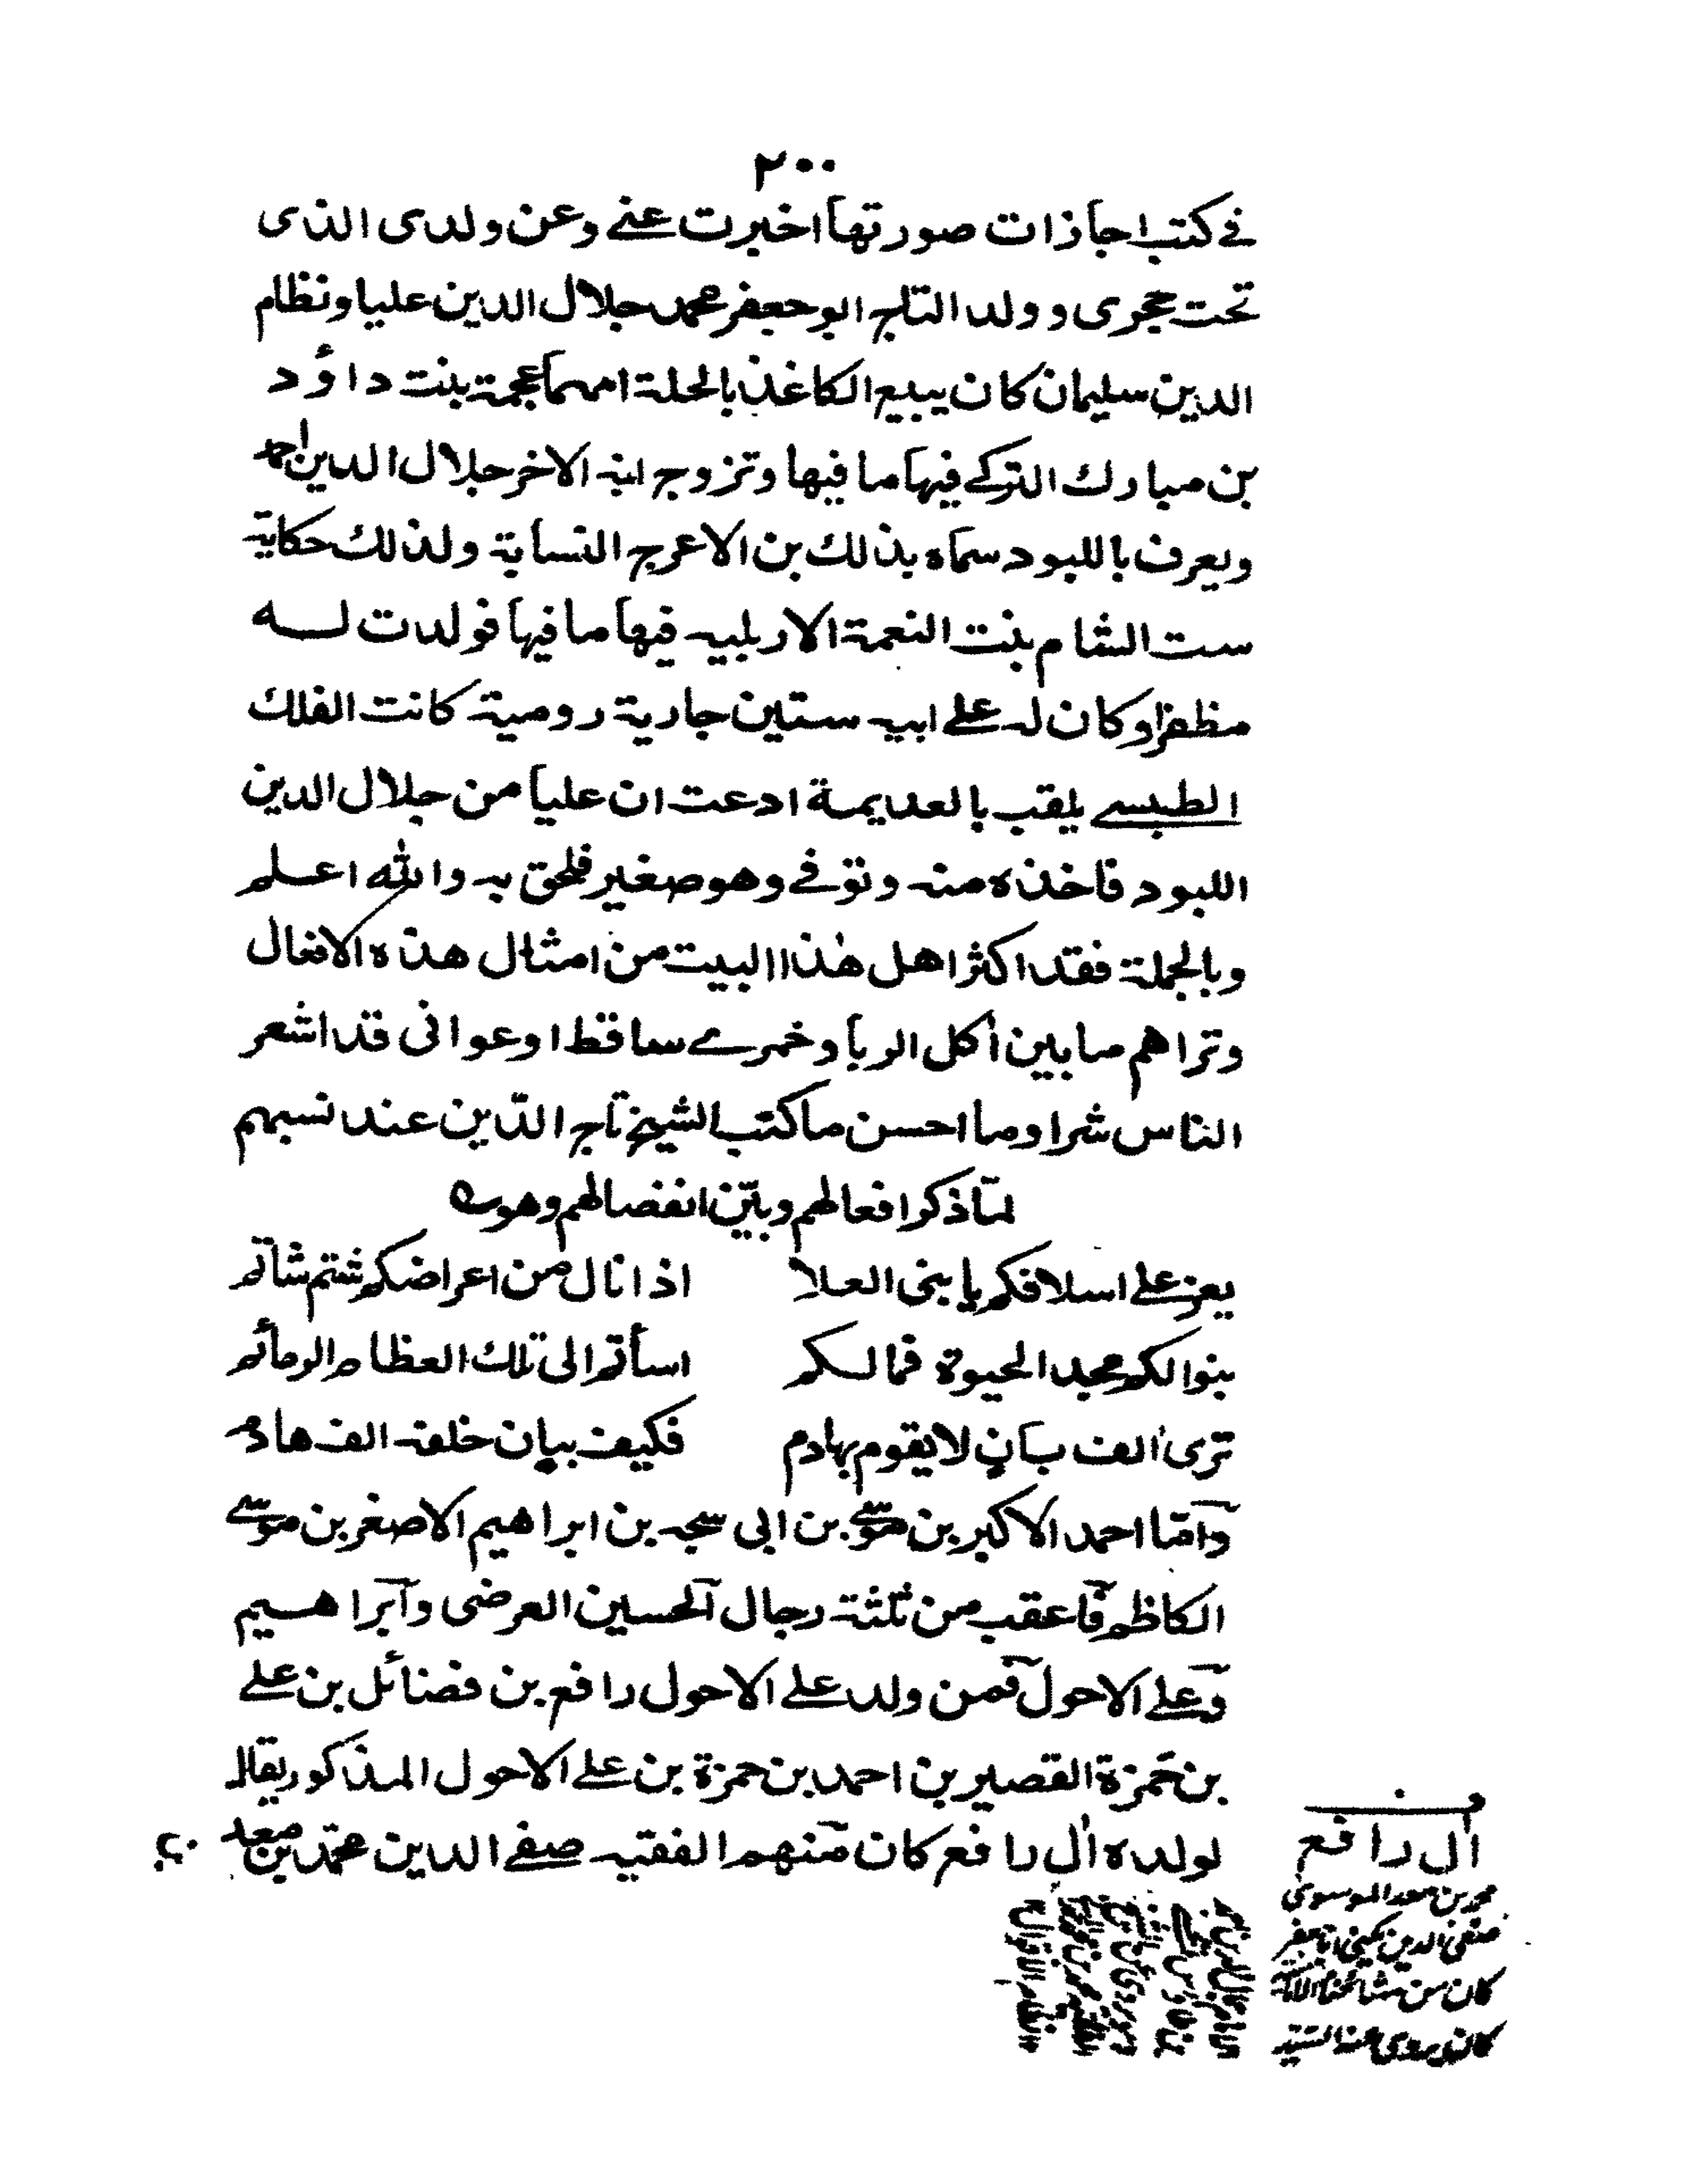 ٢٠٠
في كتب اجازات صورتها اخبرت عني وعن ولدى الذى
تحت حجرى و ولد التاج ابو جعفر محمد جلال الدين عليا ونظام
الدين سليمان كان يبيع الكاغذ بالحلة امهما عجمة بنت داؤد
بن مبارك التركي فيها ما فيها وتزوج ابنه الاخر جلال الدين احمد
ويعرف باللبود سماه بذلك بن الاعرج النسابة ولذلك حكاية
ست الشام بنت النعمة الاربلبيه فيها ما فيها فولدت له
مظفرا وكان له على ابيه ستين جارية رومية كانت الفلك
الطبسي يلقب بالعديمة ادعت ان عليا من جلال الدين
اللبود فاخذه منه وتوفي وهو صغير فلحق به والله اعلم
وبالجملة فقد اكثر اهل هذا البيت من امثال هذه الافعال
وتراهم ما بين أكل الربا وخمرے ساقط او عوانى قد اشعر
الناس شرا وما احسن ما كتب الشيخ تاج الدّين عند نسبهم
لمّا ذكر افعالهم وبيّن انفصالهم وهو
يعز على اسلافكم يا بنى العلا اذا نال من اعراضكم شتم شاتم
بنوا لكم مجد الحيوة فما لكم اسأتم الى تلك العظام الرمائم
ترى الف بانٍ لا يقوم بهادم فكيف ببان خلفه الف هادم
وامّا احمد الاكبر بن موسى بن ابى سبحه بن ابراهيم الاصغر بن موسى
الكاظم فاعقب من ثلثة رجال الحسين العرضى وابراهيم
وعلى الاحول فمن ولد على الاحول رافع بن فضائل بن على
بن حمزة القصير بن احمد بن حمزة بن على الاحول المذكور يقال
لولده ال رافع كان منهم الفقيه صفى الدين محمّد بن معد
ال رافع
محمد بن معد الموسوى
صفى الدين يكنى ابا جعفر
كان من مشائخنا
كان يروى عنه السيد